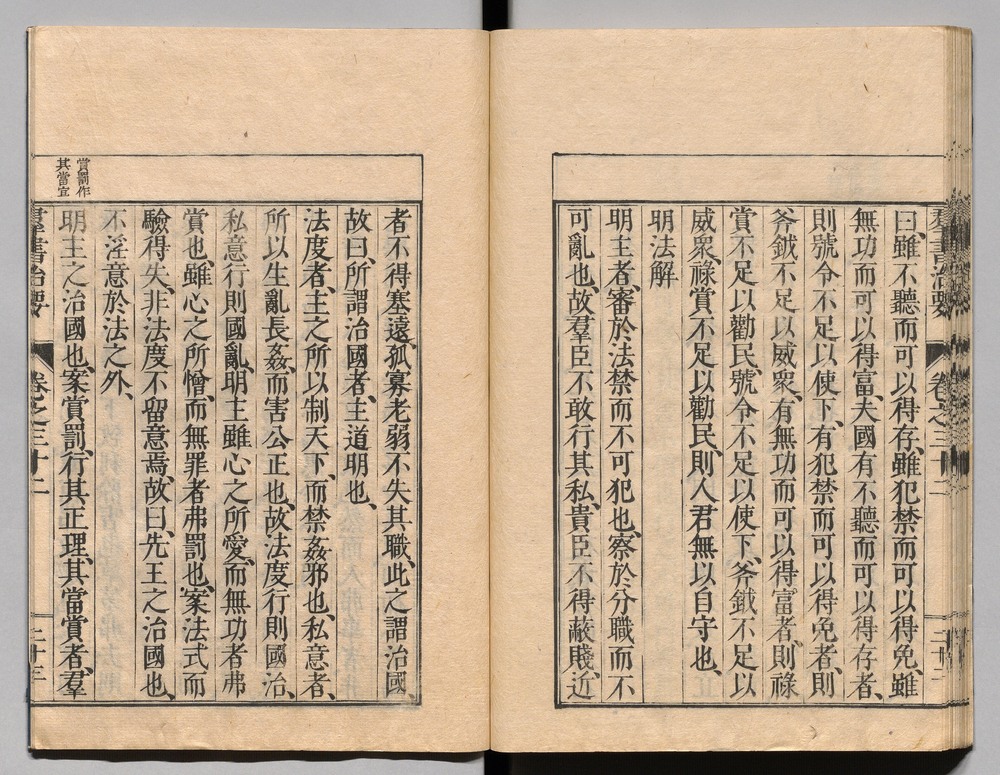 曰、雖不聽而可以得存、雖犯禁而可以得免、雖
無功而可以得富、夫國有不聽而可以得存者、
則號令不足以使下、有犯禁而可以得免者、則
斧鉞不足以威衆、有無功而可以得富者、則祿
賞不足以勸民、號令不足以使下、斧鉞不足以
威衆、祿賞不足以勸民、則人君無以自守也、
明法解
明主者、審於法禁而不可犯也、察於分職而不
可亂也、故羣臣不敢行其私、貴臣不得蔽賤、近
者不得塞遠、孤寡老弱不失其職、此之謂治國、
故曰、所謂治國者、主道明也、
法度者、主之所以制天下、而禁姦邪也、私意者、
所以生亂長姦、而害公正也、故法度行則國治、
私意行則國亂、明主雖心之所愛、而無功者弗
賞也、雖心之所憎、而無罪者弗罰也、案法式而
驗得失、非法度不留意焉、故曰、先王之治國也、
不淫意於法之外、
明主之治國也、案賞罰、行其正理、其當賞者、羣
賞罰作
其當宜
羣書治要 卷之三十二 二十三